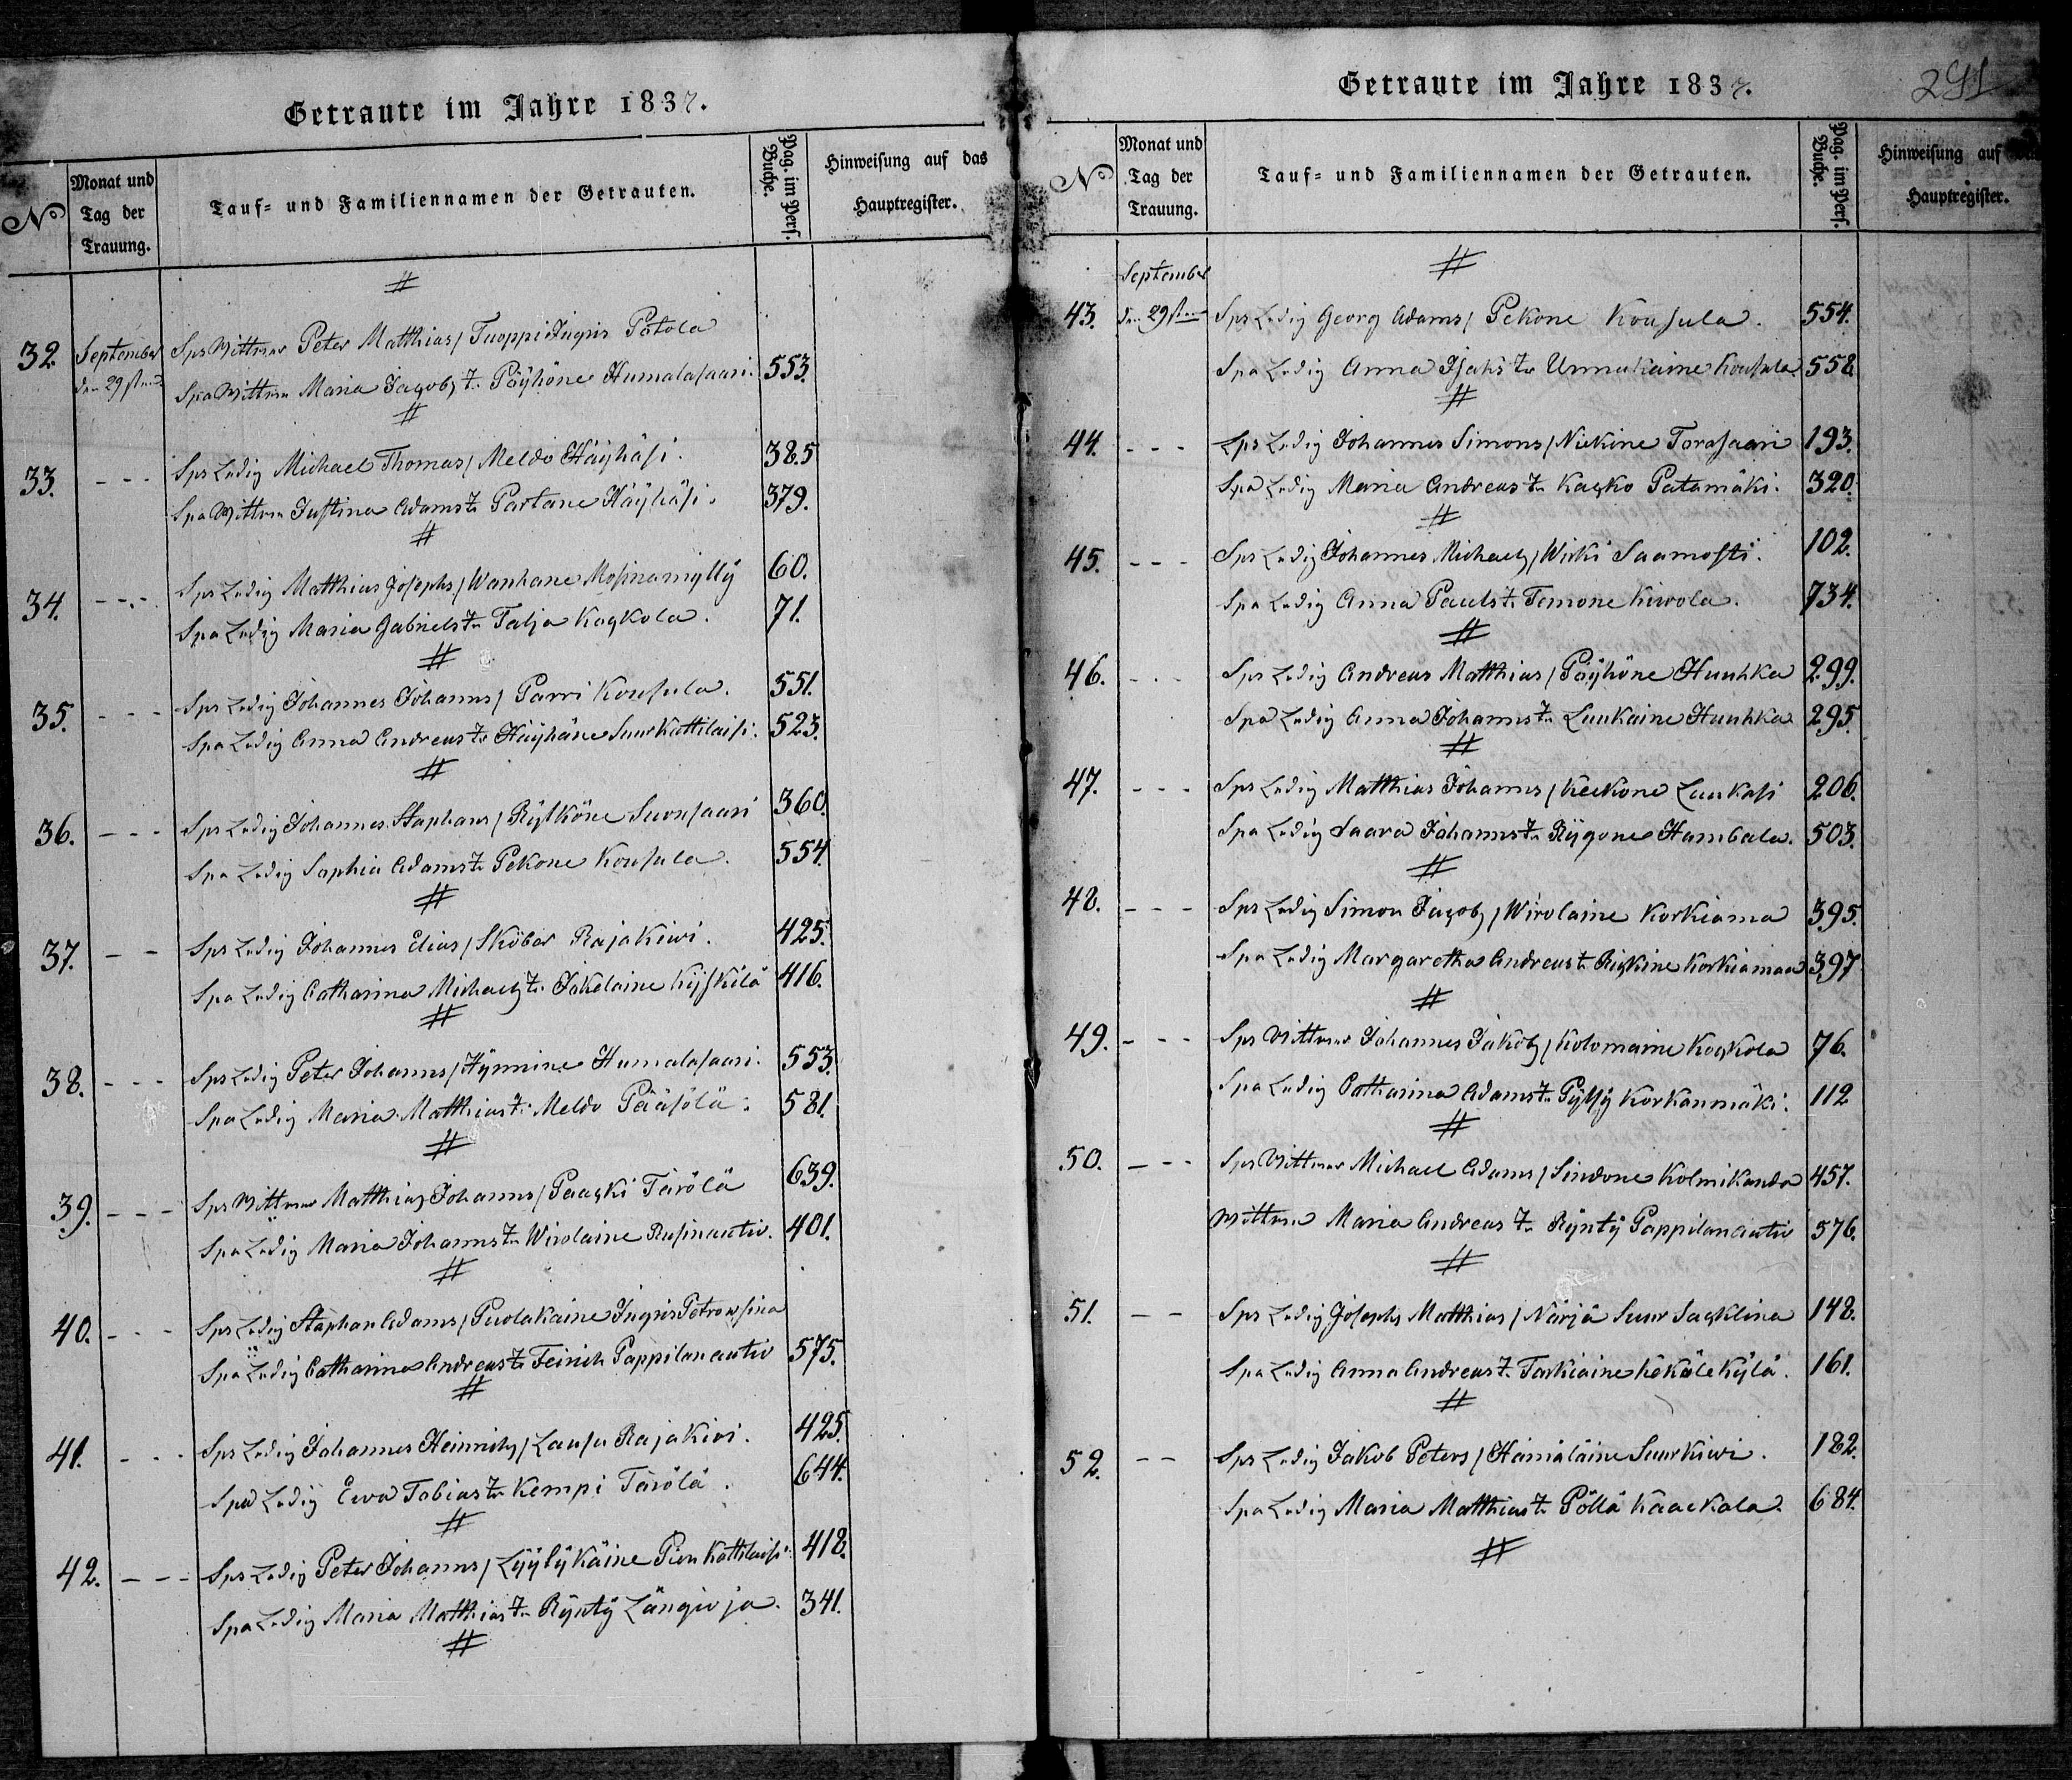 Getraute im Jahre 1837.
No
Monat und Tag der Trauung.
Tauf- und Familiennamen der Getrauten.
Pag. im Pers. Buche.
Hinweisung auf das Hauptregister.
#
32. September den 29st Sps Wittwer Peter Matthias/ Tuoppi Ingris Potola
Spa Wittwe Maria Jacobs Tr. Pöÿhöne Humalasaari. 553.
#
33. - - - Sps Ledig Michael Thomas/ Meldo Häÿhäsi. 385
Spa Wittwe Justina Adams Tr Partane Häÿhäsi. 379.
#
34. - - - Sps Ledig Matthias Josephs/ Wanhane Mosinamÿllÿ 60.
Spa Ledig Maria Gabriels Tr Talja Kackola. 71.
#
35. - - - Sps Ledig Johannes Johanns/ Parri Kousula. 551.
Spa Ledig Anna Andreas Tr Häÿhäne Suur Kattilaisi. 523.
#
36. - - - Sps Ledig Johannes Staphans/ Rÿlköne Suonsaari 360.
Spa Ledig Sophia Adams Tr Pekone Kousula. 554.
#
37. - - Sps Ledig Johannes Elias/ Sköbar Rajakiwi. 425.
Spa Ledig Catharina Michaels Tr. Jokelaine Kÿlskilä 416.
#
38. - - - Sps Ledig Peter Johanns/ Hÿnnine Humalasaari. 553.
Spa Ledig Maria Matthias Tr Meldo Pääsölä. 581.
#
39. - - - Sps Wittwer Matthias Johanns/ Paacki Tärölä 639.
Spa Ledig Maria Johanns Tr Wirolaine Rusinautio. 401.
#
40. - - - Sps Ledig Staphan Adams/ Puolakaine Ingris Petrowsina
Spa Ledig Catharina Andreas Tr Feinik Pappilanautio 575.
#
41. - - - Sps Ledig Johannes Heinrichs/ Lausu Rajakiwi. 425.
Spa Ledig Ewa Tobias Tr Kempi Tärölä. 644.
#
42. - - - Sps Ledig Peter Johanns/ Lÿÿlÿkäine Pien Kattilaisi. 418.
Spa Ledig Maria Matthias Tr Rÿntÿ Längioja. 341.
#
Getraute im Jahre 1837.
291
No
Monat und Tag der Trauung.
Tauf- und Familiennamen der Getrauten.
Pag. im Pers. Buche.
Hinweisung auf das Hauptregister.
September #
43. den 29st Sps Ledig Georg Adams/ Pekone Kousula. 554.
Spa Ledig Anna Isaks Tr Unnukaine Kousula 558.
#
44. - - - Sps Ledig Johannes Simons/ Niekine Torasaari 193.
Spa Ledig Maria Andreas Tr Kacko Patamäki. 320.
#
45. - - - Sps Ledig Johannes Michaels/ Wirki Saamosti. 102.
Spa Ledig Anna Pauls Tr Temone Kiwola. 734.
#
46. - - - Sps Ledig Andreas Matthias/ Pöÿhöne Huuhka 299.
Spa Ledig Anna Johanns Tr Luukaine Huuhka 295.
#
47. - - - Sps Ledig Matthias Johanns/ Keekone Luukasi 206.
Spa Ledig Saara Johanns Tr Rÿgone Hambala. 503.
#
48. - - - Sps Ledig Simon Jacobs/ Wirolaine Korkiama 395.
Spa Ledig Margaretha Andreas Tr Rickine Korkiamaa 397
#
49. - - - Sps Wittwer Johannes Jakobs/ Kolomaine Kackola 76.
Spa Ledig Catharina Adams Tr Pÿssÿ Korkanmäki. 112
#
50. - - - Sps Wittwer Michael Adams/ Sindone Kolmikanda 457.
Wittwe Maria Andreas Tr Rÿntÿ Pappilanautio 576.
#
51. - - Sps Ledig Josephs Matthias/ Närjä Suur Sacklina 148.
Spa Ledig Anna Andreas Tr. Tarkiaine Kekäle Kÿlä. 161.
#
52. - - Sps Ledig Jakob Peters/ Hämäläine Suurkiwi. 182.
Spa Ledig Maria Matthias Tr Pöllä Kaackala. 684.
#